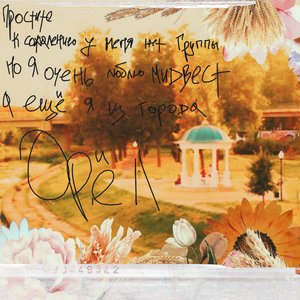 Простите
К сожалению у меня нет группы
Но я очень люблю мидвест
а ещё я из города
Орёл